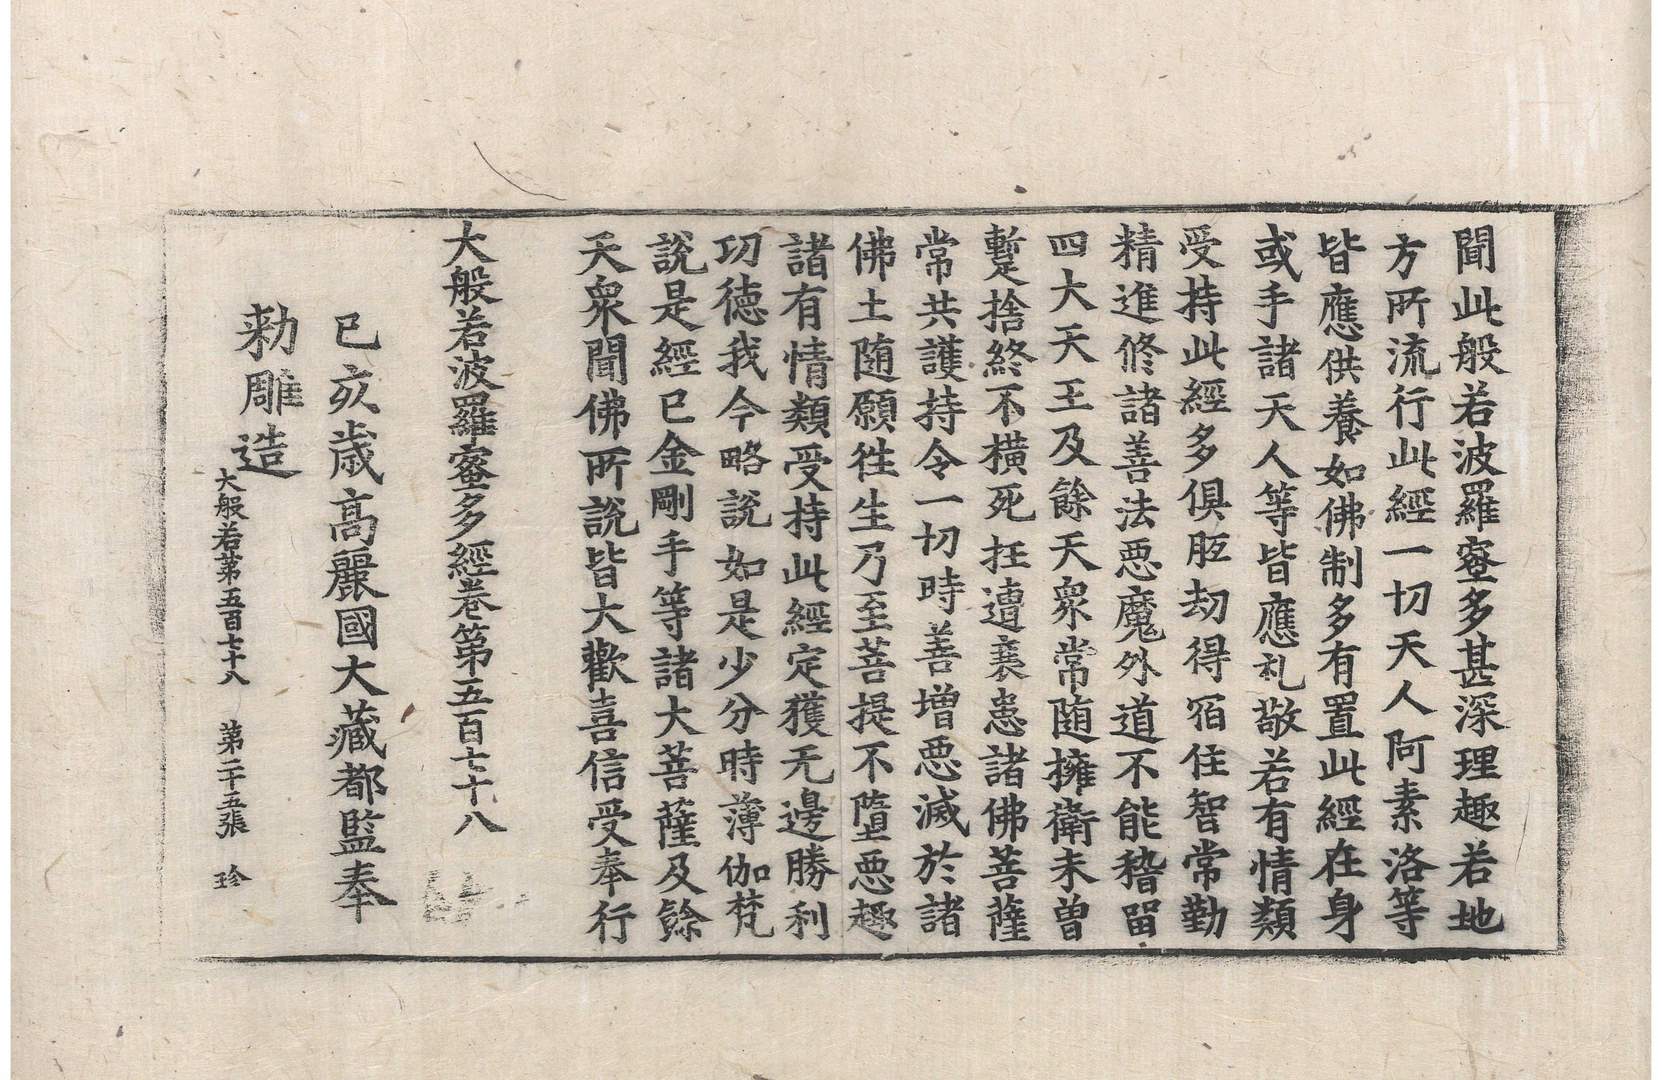 聞此般若波羅蜜多甚深理趣若地
方所流行此經一切天人阿素洛等
皆應供養如佛制多有置此經在身
或手諸天人等皆應礼敬若有情類
受持此經多俱胝劫得宿住智常勤
精進修諸善法惡魔外道不能稽留
四大天王及餘天衆常随擁衛未曾
蹔捨終不橫死抂遭衰患諸佛菩薩
常共護持令一切時善增惡滅於諸
佛土随願往生乃至菩提不墮惡趣
諸有情類受持此經定獲无邊勝利
功德我今略說如是少分時薄伽梵
說是經已金剛手等諸大菩薩及餘
天衆聞佛所說皆大歡喜信受奉行
大般若波羅蜜多經卷第五百七十八
己亥歲高麗國大藏都監奉
勅雕造
大般若第五百七十八 第二十五張 珍